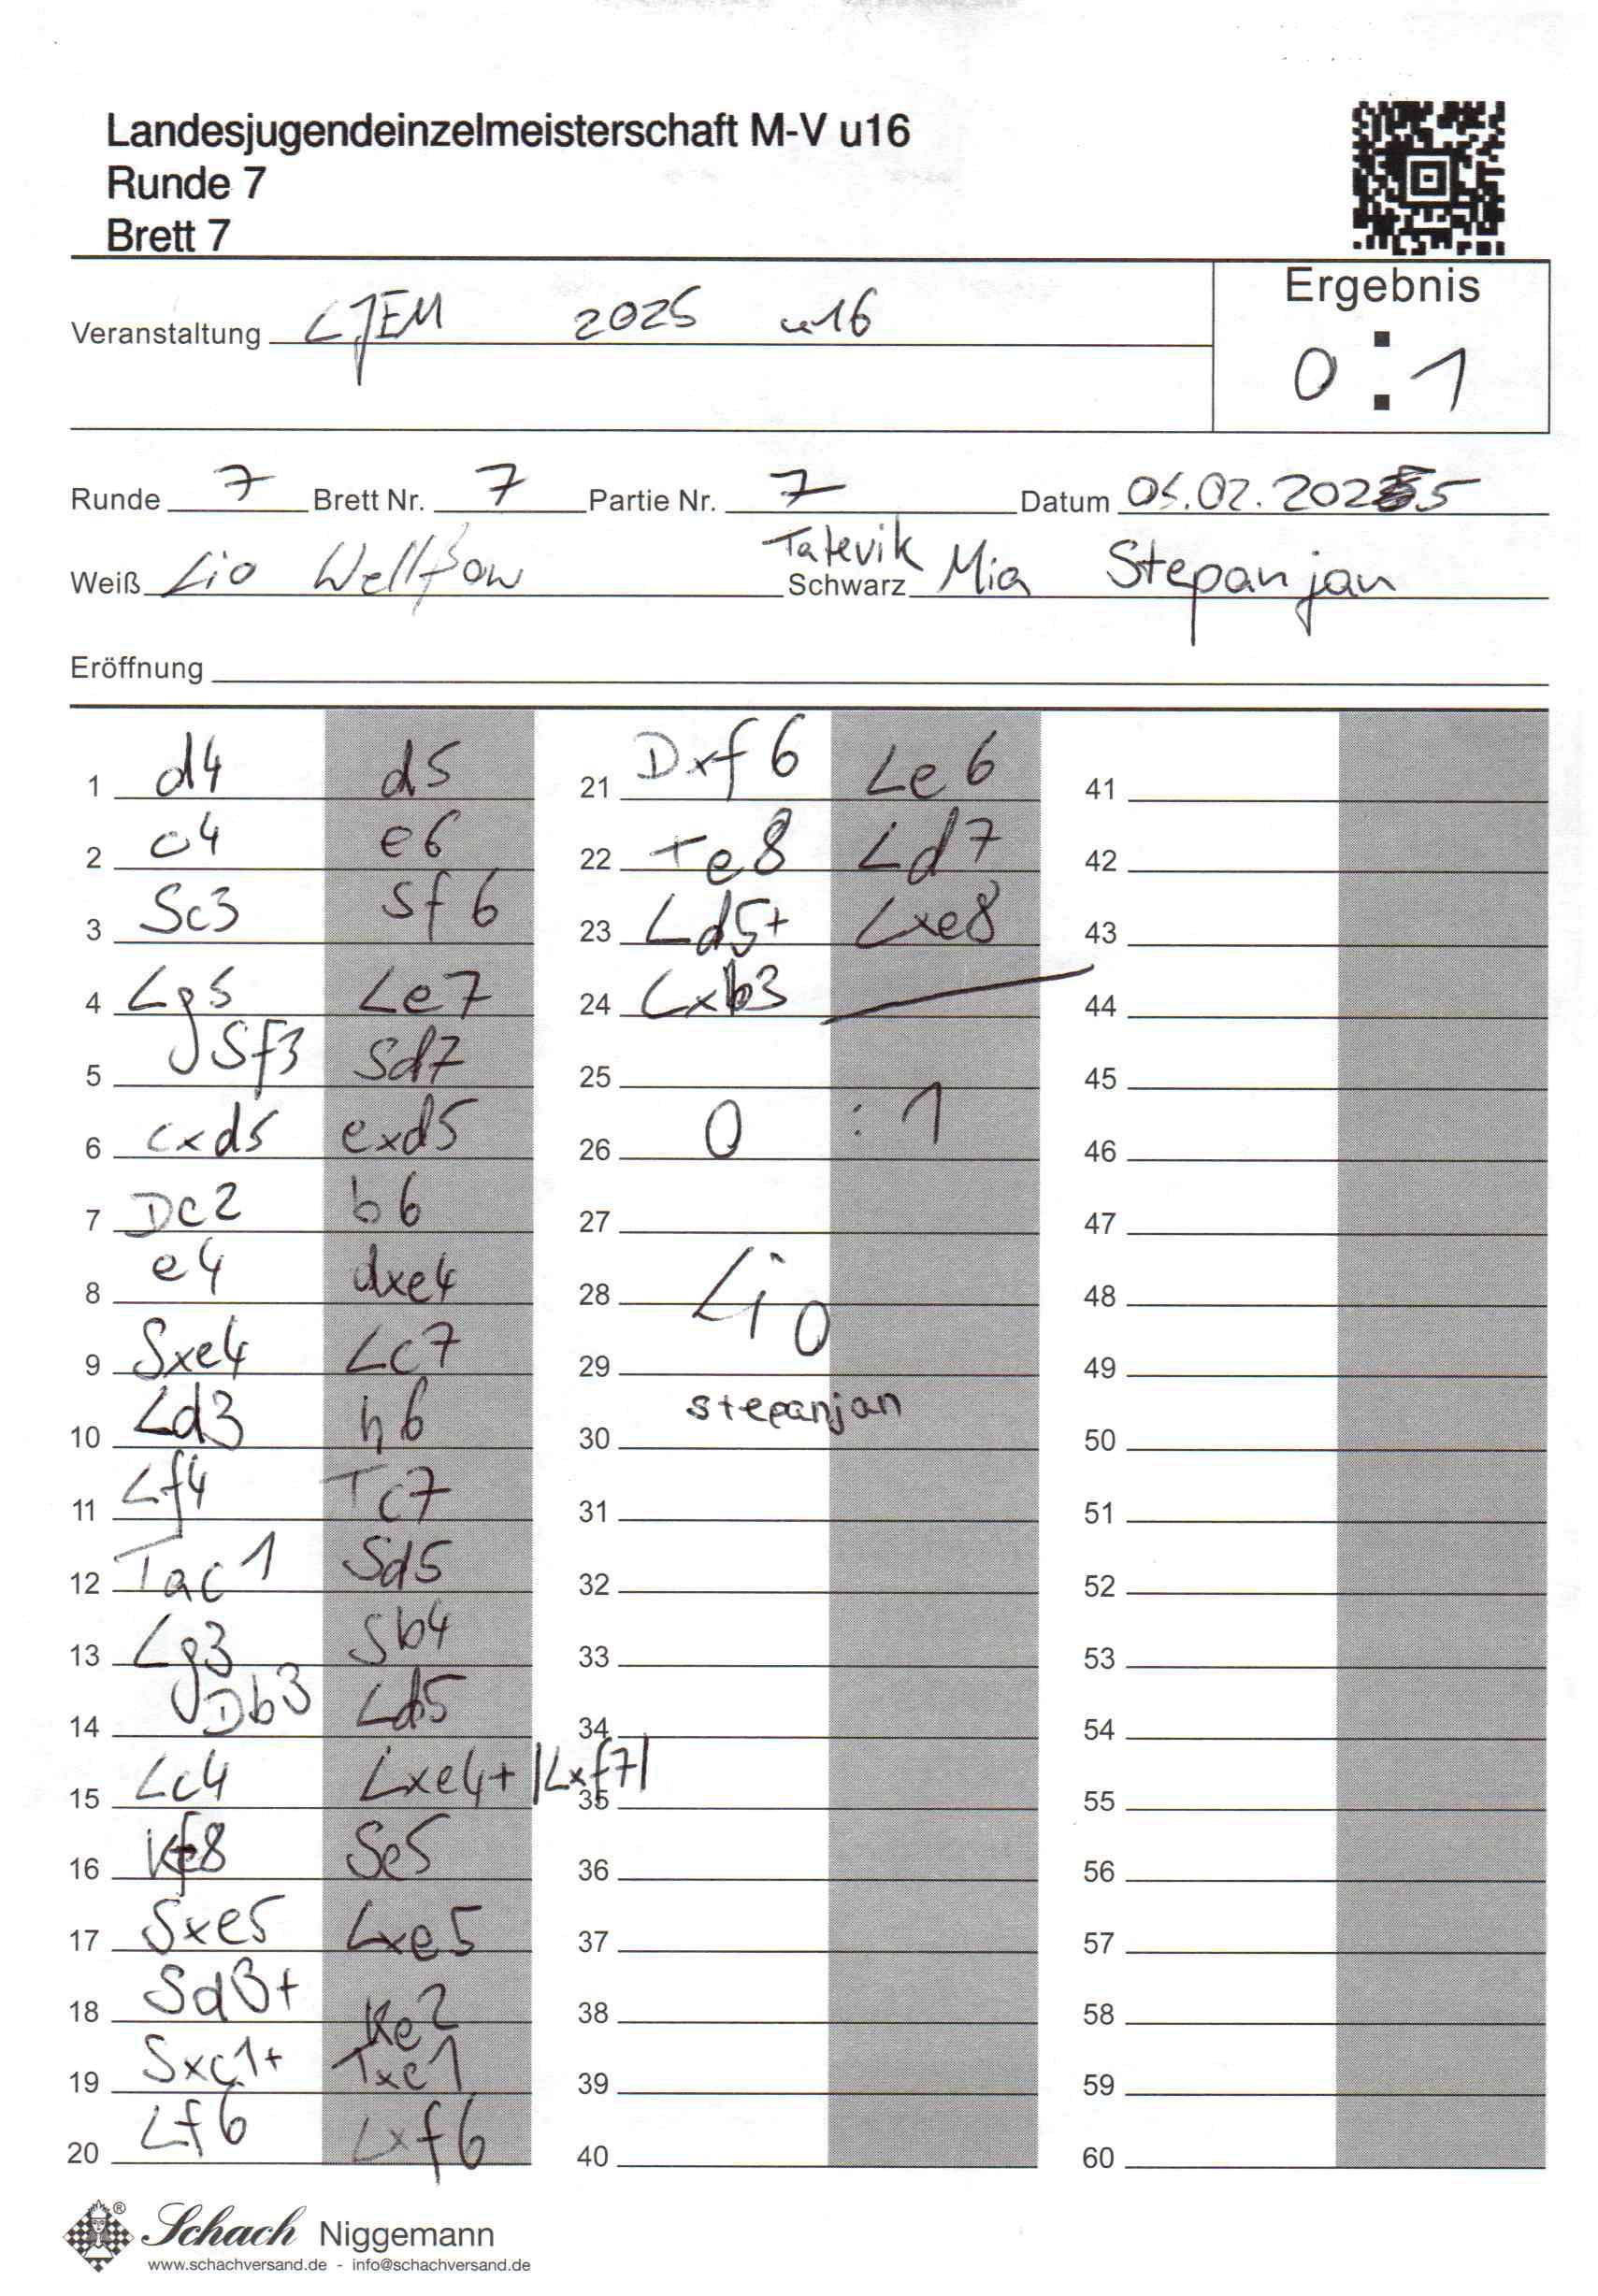 Landesjugendeinzelmeisterschaft M-V u16
Runde 7
Brett 7
Ergebnis
0 : 1
Veranstaltung LJEM 2025 u16
Runde 7 Brett Nr. 7 Partie Nr. 7 Datum 05.02.2025
Tatevik
Weiß Lio Schwarz Mia Stepanjan
Eröffnung
1 d4 d5
2 c4 e6
3 Sc3 Sf6
4 Lg5 Le7
5 Sf3 Sd7
6 cxd5 exd5
7 Dc2 b6
8 e4 dxe4
9 Sxe4 Lc7
10 Ld3 h6
11 Lf4 Tc7
12 Tac1 Sd5
13 Lg3 Sb4
14 Db3 Ld5
15 Lc4 Lxe4+ |Lxf7|
16 Kf8 Se5
17 Sxe5 Lxe5
18 Sd3+ Ke2
19 Sxc1+ Txc1
20 Lf6 Lxf6
21 Dxf6 Le6
22 Te8 Ld7
23 Ld5+ Lxe8
24 Lxb3
25
26 0 : 1
27
28 Lio
29
30 stepanjan
31
32
33
34
35
36
37
38
39
40
41
42
43
44
45
46
47
48
49
50
51
52
53
54
55
56
57
58
59
60
® Schach Niggemann
www.schachversand.de - info@schachversand.de